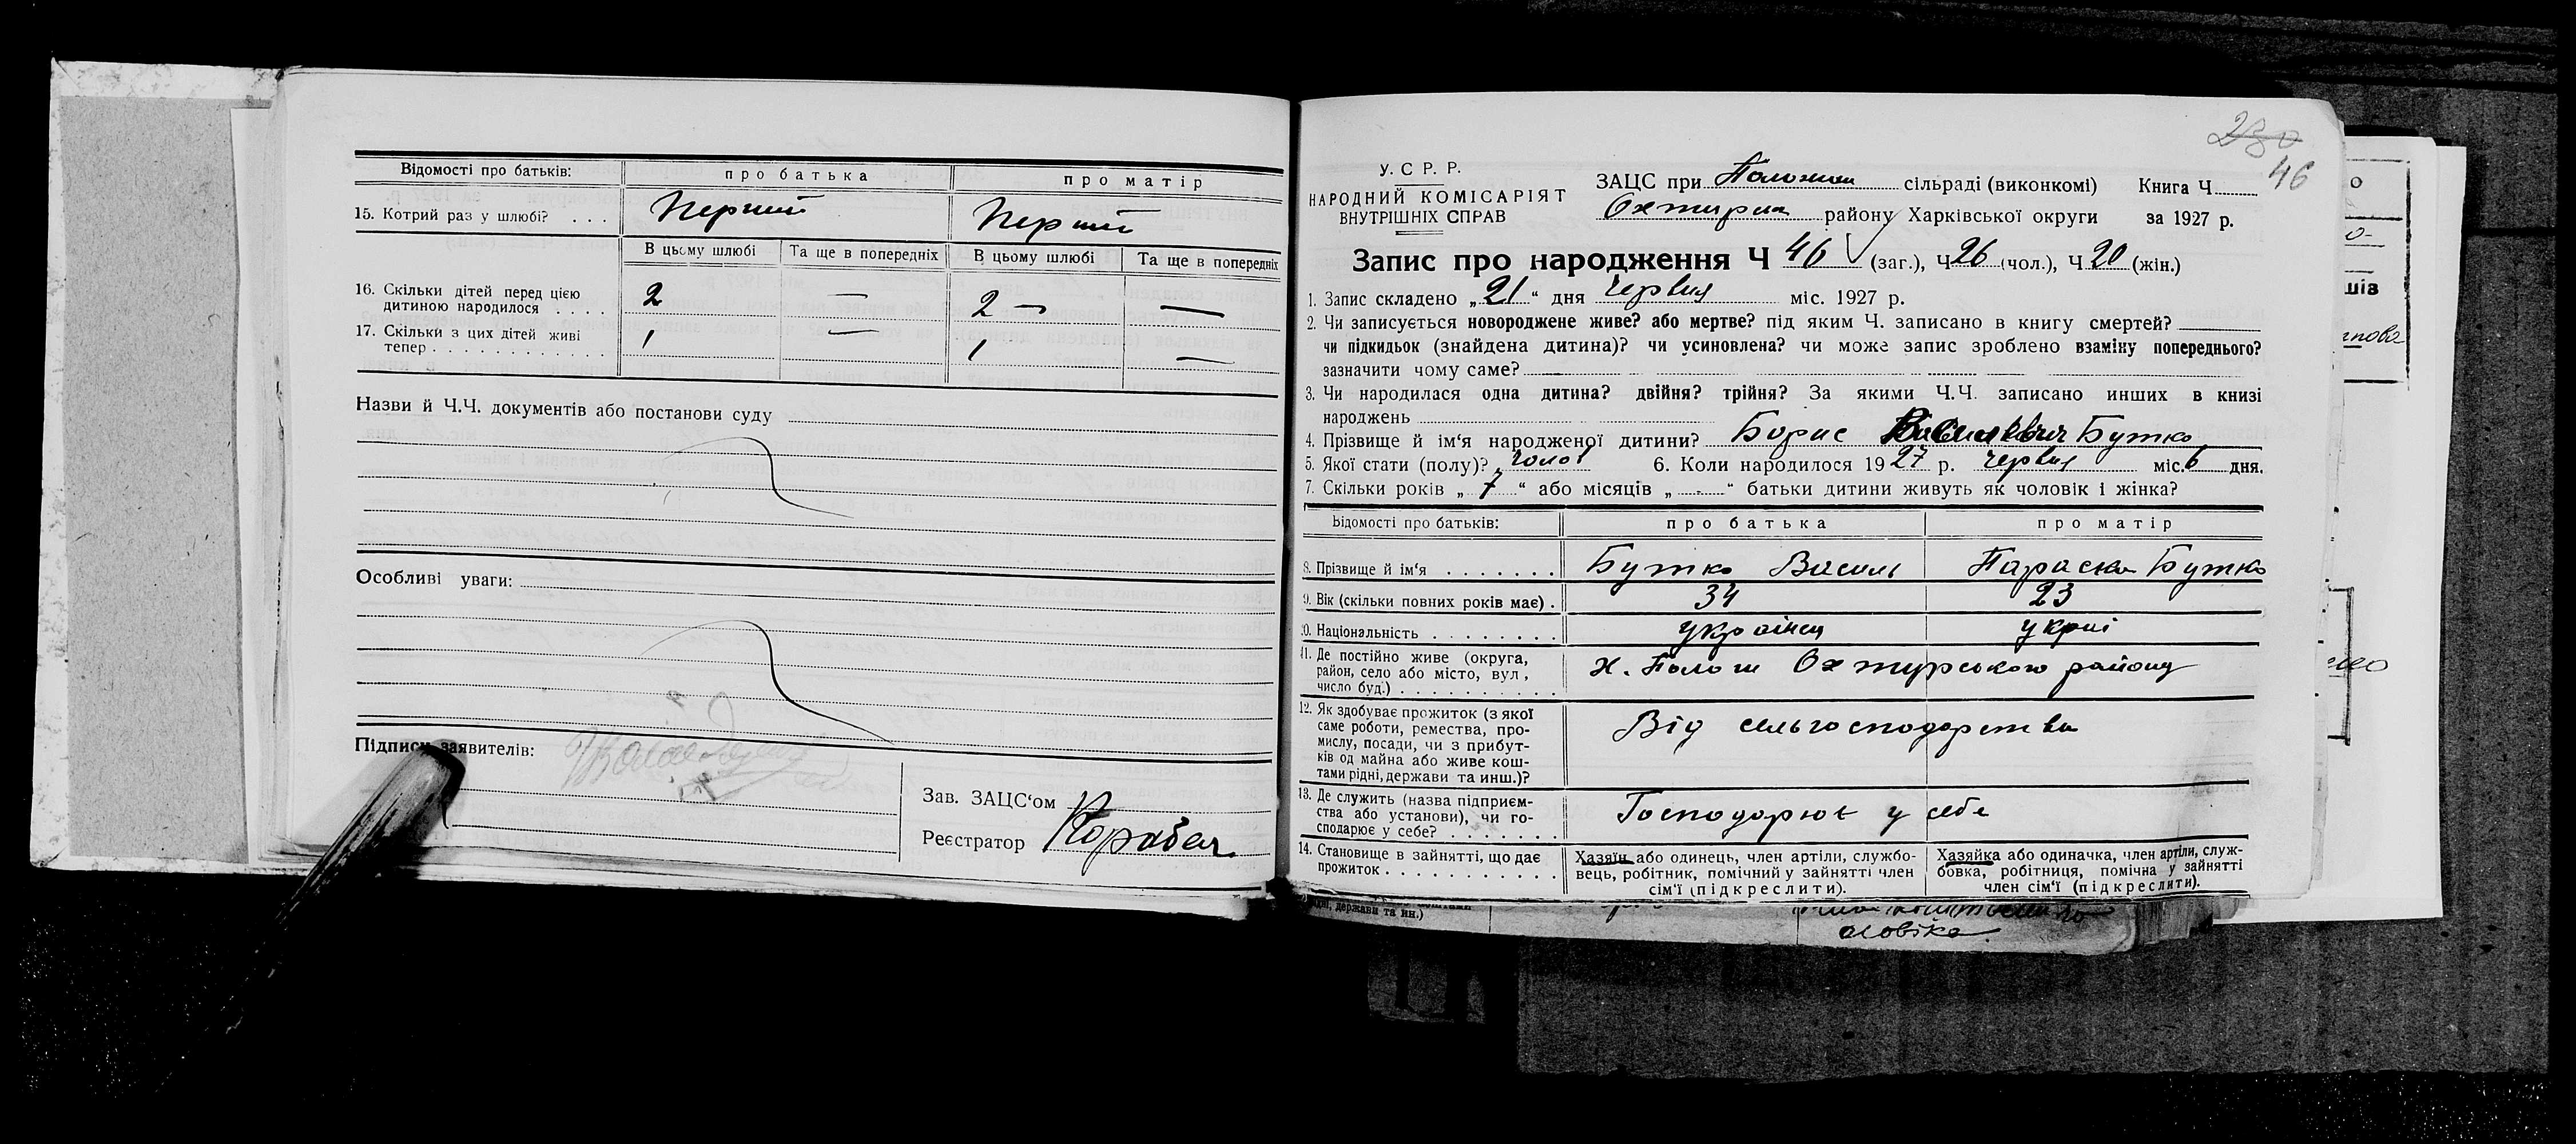 Відомості про батьків: про батька про матір
15. Котрий раз у шлюбі? . . . Перший Перший
В цьому шлюбі Та ще в попередніх В цьому шлюбі Та ще в попередніх
16. Скільки дітей перед цією
дитиною народилося . . . . 2 — 2 — —
17. Скільки з цих дітей живі
тепер . . . . . . . . . . . . 1 — 1 —
Назви й Ч.Ч. документів або постанови суду
Особливі уваги:
Підписи заявителів:
Зав. ЗАЦС'ом
Реєстратор
230
46
У. С. Р. Р.
НАРОДНИЙ КОМІСАРІЯТ
ВНУТРІШНІХ СПРАВ
ЗАЦС при сільраді (виконкомі) Книга Ч
Охтирки району Харківської округи за 1927 р.
Запис про народження Ч 46 (заг.), Ч 26 (чол.), Ч 20 (жін.)
1. Запис складено „21“ дня червня міс. 1927 р.
2. Чи записується новороджене живе? або мертве? під яким Ч. записано в книгу смертей?
чи підкидьок (знайдена дитина)? чи усиновлена? чи може запис зроблено взаміну попереднього?
зазначити чому саме?
3. Чи народилася одна дитина? двійня? трійня? За якими Ч.Ч. записано инших в книзі
народжень
4. Прізвище й ім'я народженої дитини? Борис Васильович Бутко
5. Якої стати (полу)? чолов 6. Коли народилося 1927 р. червня міс. 6 дня.
7. Скільки років „7“ або місяців „-“ батьки дитини живуть як чоловік і жінка?
Відомості про батьків: про батька про матір
8. Прізвище й ім'я . . . . . . . Бутко Василь Параска Бутко
9. Вік (скільки повних років має) . 34 23
10. Національність . . . . . . . . українец украі
11. Де постійно живе (округа,
район, село або місто, вул.,
число буд.) . . . . . . . . . . х. Пологи Охтирського району
12. Як здобуває прожиток (з якої
саме роботи, ремества, про-
мислу, посади, чи з прибут-
ків од майна або живе кош-
тами рідні, держави та инш.)? Від сельгосподарства
13. Де служить (назва підприєм-
ства або установи), чи го-
сподарює у себе? . . . . . . . Господарює у себе
14. Становище в зайнятті, що дає
прожиток . . . . . . . . . . . .
Хазяїн або одинець, член артілі, службо-
вець, робітник, помічний у зайнятті член
сім'ї (підкреслити).
Хазяйка або одиначка, член артіли, служ-
бовка, робітниця, помічна у зайнятті
член сім'ї (підкреслити).
держави та ин.)